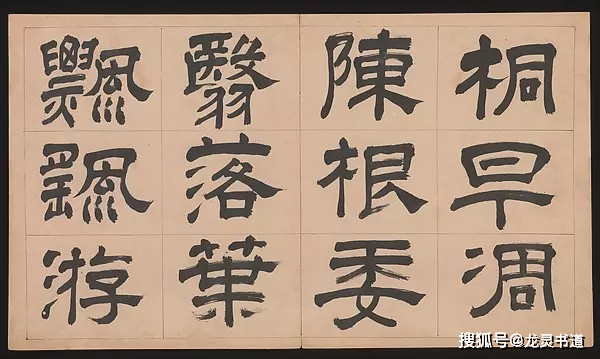 桐早凋
陳根委
翳落葉
飄颻游
搜狐号@龙灵书道